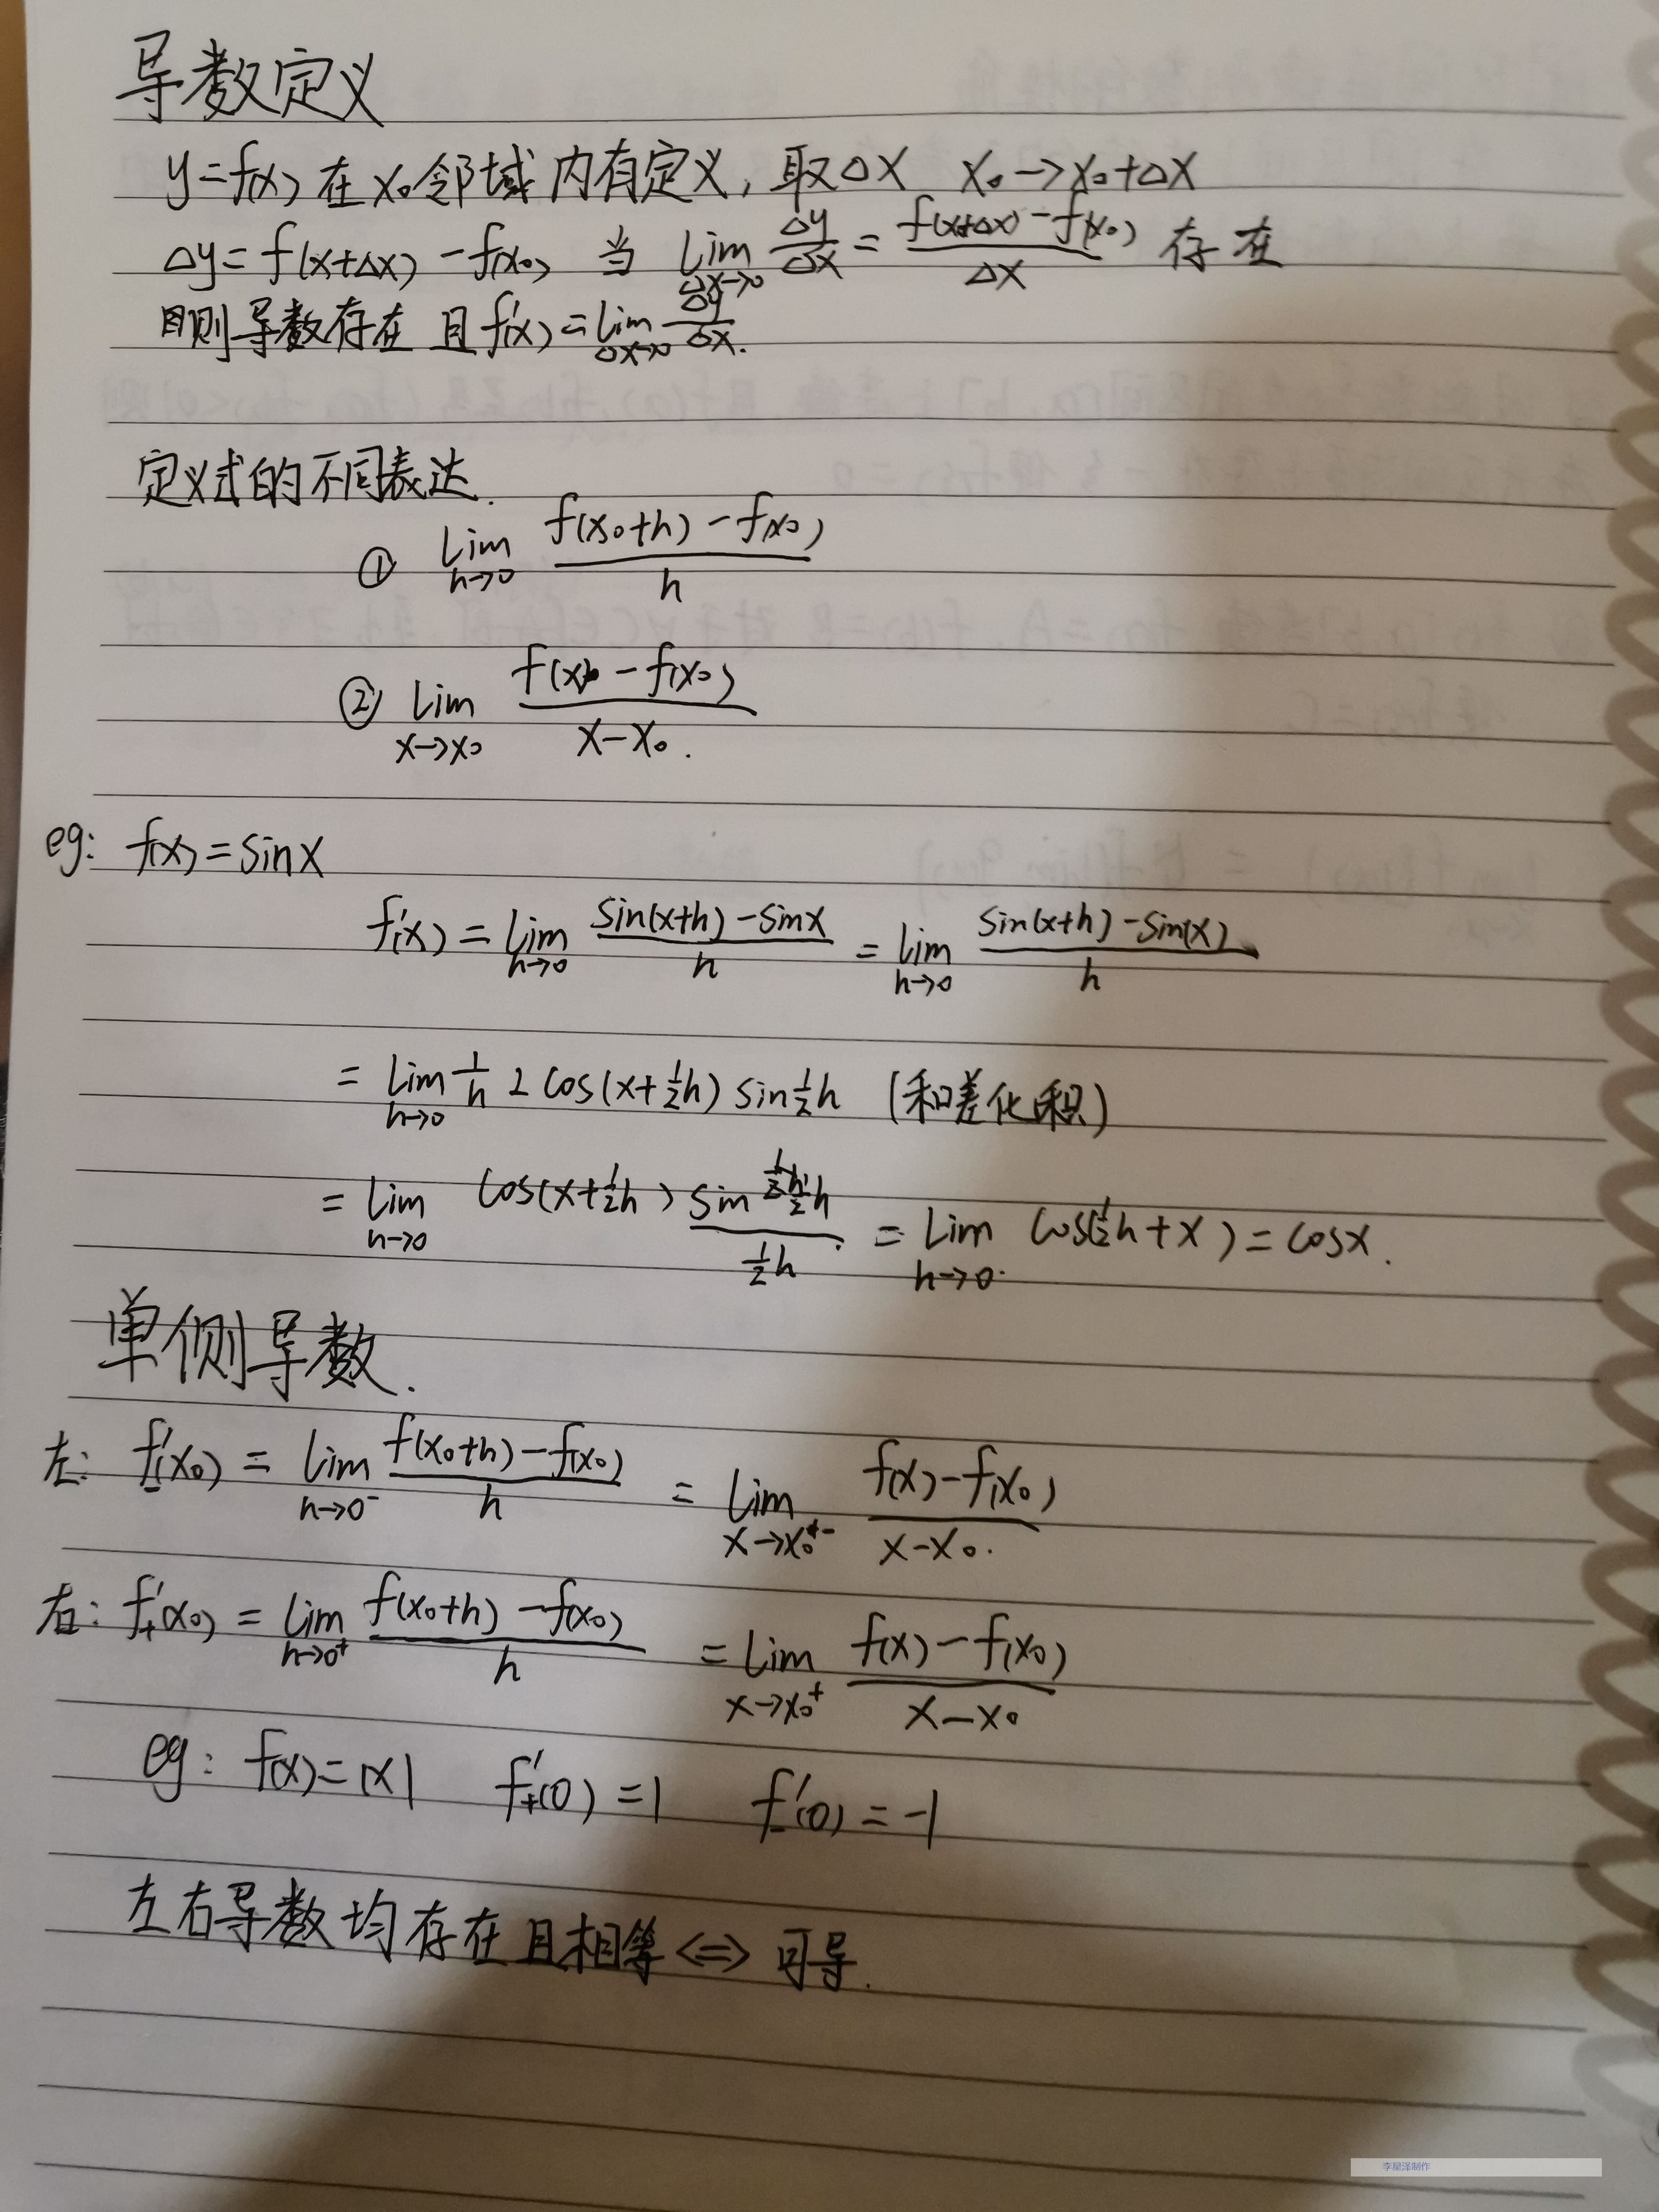 导数定义
y=f(x) 在 x₀ 邻域内有定义, 取Δx x₀→x₀+Δx
Δy=f(x+Δx)-f(x₀) 当 lim_{Δx→0} Δy/Δx = (f(x+Δx)-f(x₀))/Δx 存在
则导数存在 且 f'(x)=lim_{Δx→0} Δy/Δx.
定义式的不同表达.
① lim_{h→0} (f(x₀+h)-f(x₀))/h
② lim_{x→x₀} (f(x)-f(x₀))/(x-x₀).
eg: f(x)=sinx
f'(x)=lim_{h→0} (sin(x+h)-sinx)/h = lim_{h→0} (sin(x+h)-sin(x))/h
= lim_{h→0} 1/h 2cos(x+½h) sin½h (和差化积)
= lim_{h→0} cos(x+½h) (sin ½h)/(½h) = lim_{h→0} cos(½h+x)=cosx.
单侧导数.
左: f'₋(x₀) = lim_{h→0⁻} (f(x₀+h)-f(x₀))/h = lim_{x→x₀⁻} (f(x)-f(x₀))/(x-x₀).
右: f'₊(x₀) = lim_{h→0⁺} (f(x₀+h)-f(x₀))/h = lim_{x→x₀⁺} (f(x)-f(x₀))/(x-x₀)
eg: f(x)=|x| f'₊(0)=1 f'₋(0)=-1
左右导数均存在且相等<=>可导.
李星泽制作